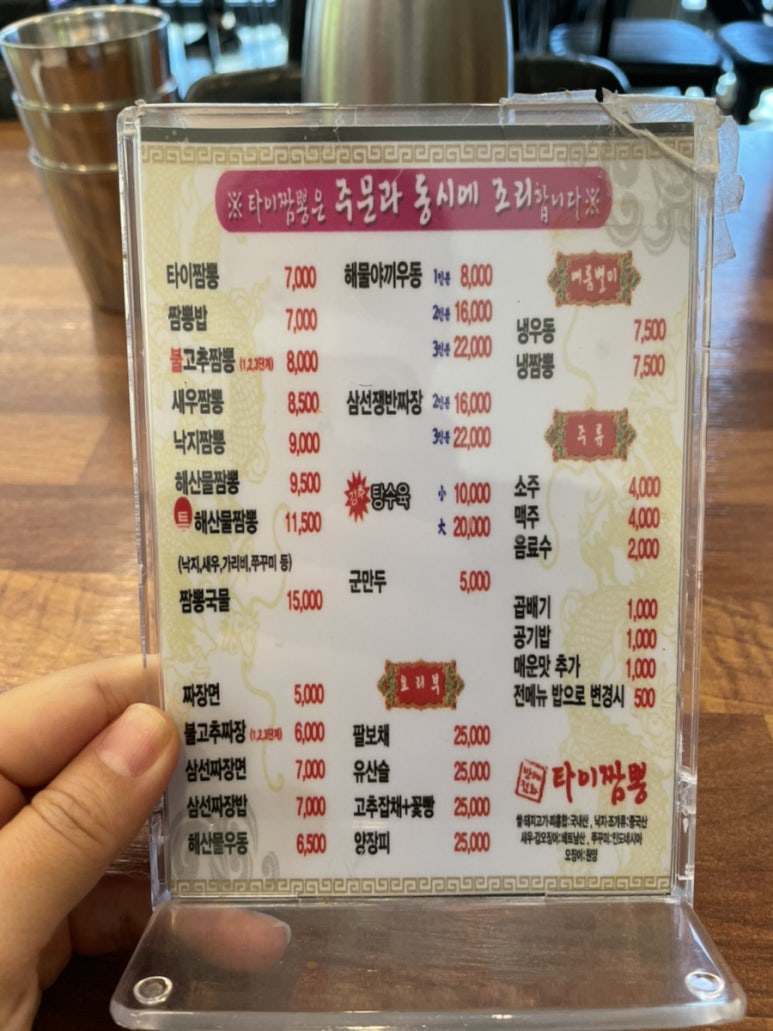 ※타이짬뽕은 주문과 동시에 조리합니다※
타이짬뽕 7,000
짬뽕밥 7,000
불고추짬뽕 (1,2,3단계) 8,000
새우짬뽕 8,500
낙지짬뽕 9,000
해산물짬뽕 9,500
특 해산물짬뽕 11,500
(낙지,새우,가리비,쭈꾸미 등)
짬뽕국물 15,000
짜장면 5,000
불고추짜장 (1,2,3단계) 6,000
삼선짜장면 7,000
삼선짜장밥 7,000
해산물우동 6,500
해물야끼우동 1인분 8,000
2인분 16,000
3인분 22,000
삼선쟁반짜장 2인분 16,000
3인분 22,000
강추 탕수육 小 10,000
大 20,000
군만두 5,000
요리부
팔보채 25,000
유산슬 25,000
고추잡채+꽃빵 25,000
양장피 25,000
여름별미
냉우동 7,500
냉짬뽕 7,500
주류
소주 4,000
맥주 4,000
음료수 2,000
곱배기 1,000
공기밥 1,000
매운맛 추가 1,000
전메뉴 밥으로 변경시 500
타이짬뽕
쌀·돼지고기·파홍합:국내산, 낙지·조개류:중국산
새우·갑오징어:베트남산, 쭈꾸미:인도네시아
오징어:원양